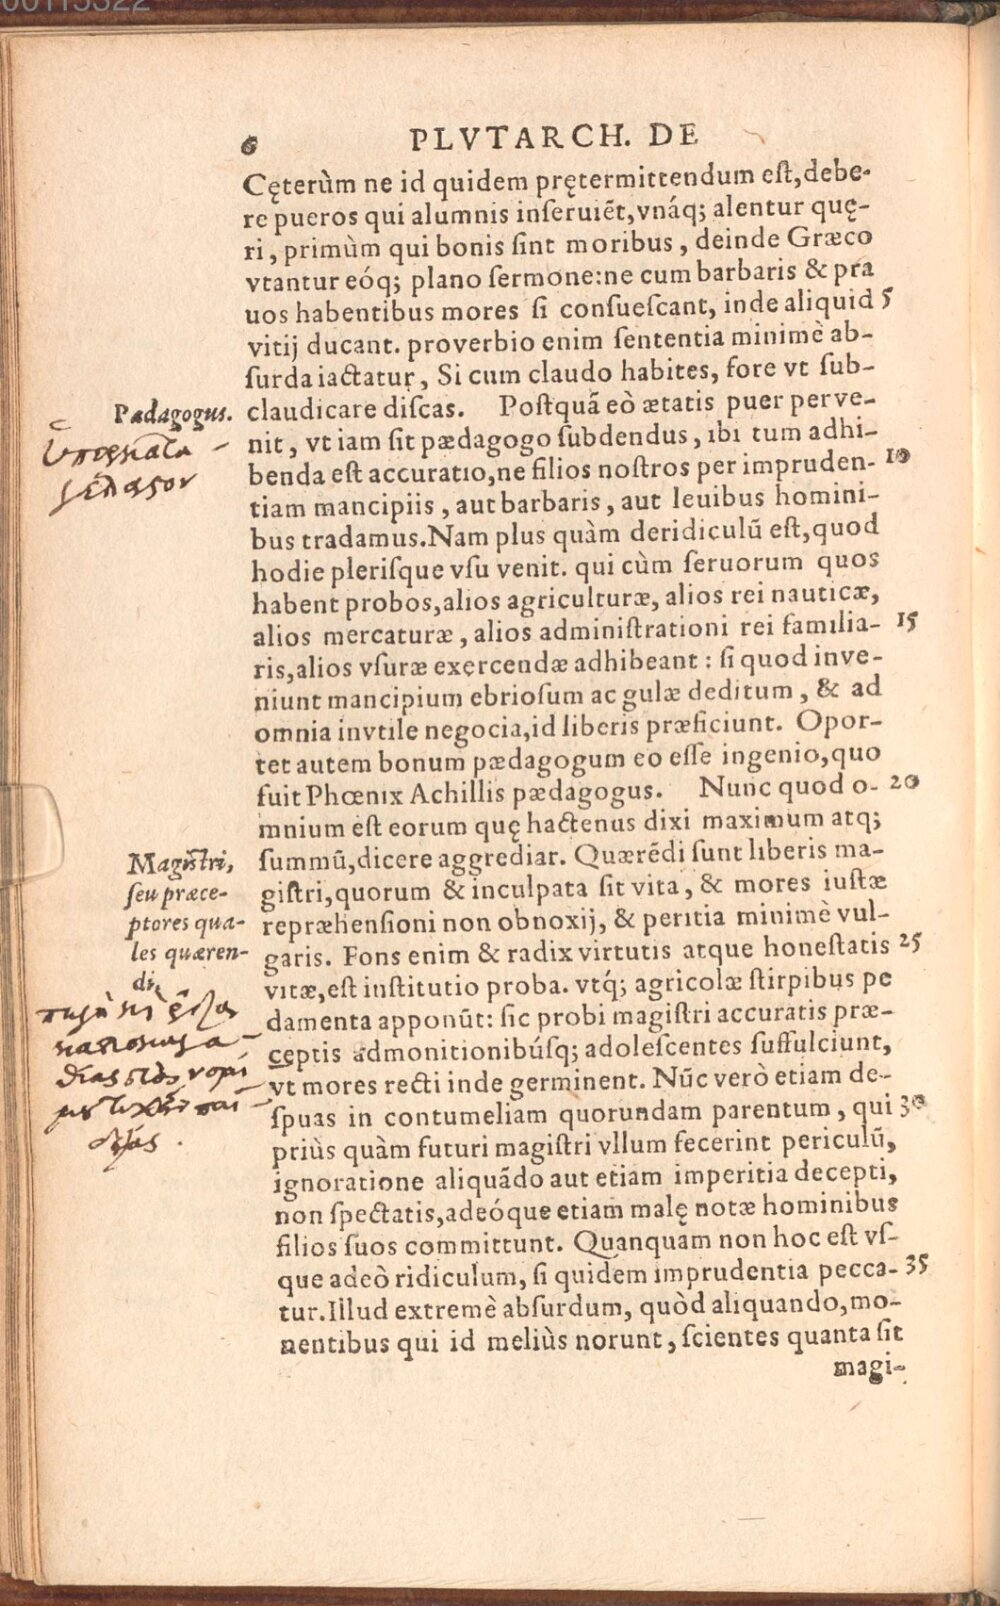 00115322
6 PLVTARCH. DE
Cęterùm ne id quidem prętermittendum est,debe-
re pueros qui alumnis inseruiẽt,vnáq; alentur quę-
ri, primùm qui bonis sint moribus, deinde Græco
vtantur eóq; plano sermone:ne cum barbaris & pra
uos habentibus mores si consuescant, inde aliquid 5
vitij ducant. proverbio enim sententia minimè ab-
surda iactatur, Si cum claudo habites, fore vt sub-
Pædagogus. claudicare discas. Postquã eò ætatis puer perve-
nit, vt iam sit pædagogo subdendus, ibi tum adhi-
benda est accuratio,ne filios nostros per impruden- 10
tiam mancipiis, aut barbaris, aut leuibus homini-
bus tradamus.Nam plus quàm deridiculũ est,quod
hodie plerisque vsu venit. qui cùm seruorum quos
habent probos,alios agriculturæ, alios rei nauticæ,
alios mercaturæ, alios administrationi rei familia- 15
ris,alios vsuræ exercendæ adhibeant: si quod inve-
niunt mancipium ebriosum ac gulæ deditum, & ad
omnia invtile negocia,id liberis præficiunt. Opor-
tet autem bonum pædagogum eo esse ingenio,quo
fuit Phœnix Achillis pædagogus. Nunc quod o- 20
mnium est eorum quę hactenus dixi maximum atq;
Magistri, summũ,dicere aggrediar. Quærẽdi sunt liberis ma-
seu præce- gistri,quorum & inculpata sit vita, & mores iustæ
ptores qua- repræhensioni non obnoxij, & peritia minimè vul-
les quæren- garis. Fons enim & radix virtutis atque honestatis 25
di. vitæ,est institutio proba. vtq́; agricolæ stirpibus pe
damenta apponũt: sic probi magistri accuratis præ-
ceptis admonitionibúsq; adolescentes suffulciunt,
vt mores recti inde germinent. Nũc verò etiam de-
spuas in contumeliam quorundam parentum, qui 30
priùs quàm futuri magistri vllum fecerint periculũ,
ignoratione aliquãdo aut etiam imperitia decepti,
non spectatis,adeóque etiam malę notæ hominibus
filios suos committunt. Quanquam non hoc est vs-
que adeò ridiculum, si quidem imprudentia pecca- 35
tur.Illud extremè absurdum, quòd aliquando,mo-
nentibus qui id meliùs norunt, scientes quanta sit
magi-